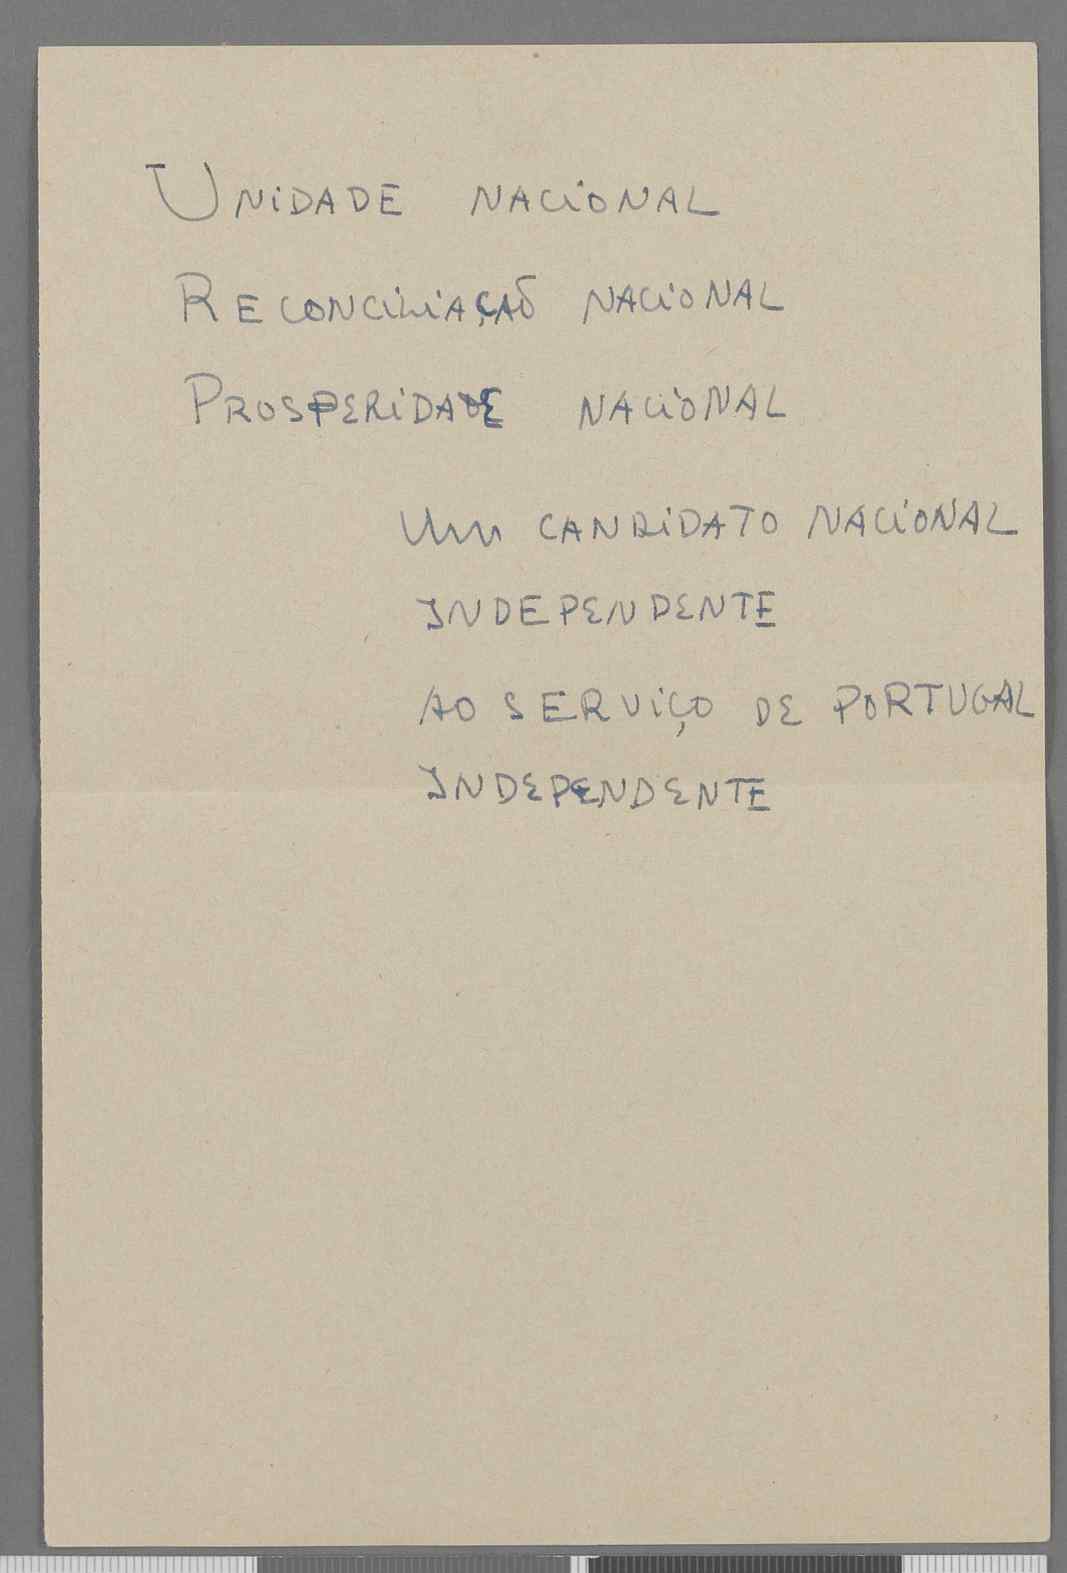 UNIDADE NACIONAL
RECONCILIAÇAÕ NACIONAL
PROSPERIDADE NACIONAL
UM CANDIDATO NACIONAL
INDEPENDENTE
AO SERVIÇO DE PORTUGAL
INDEPENDENTE